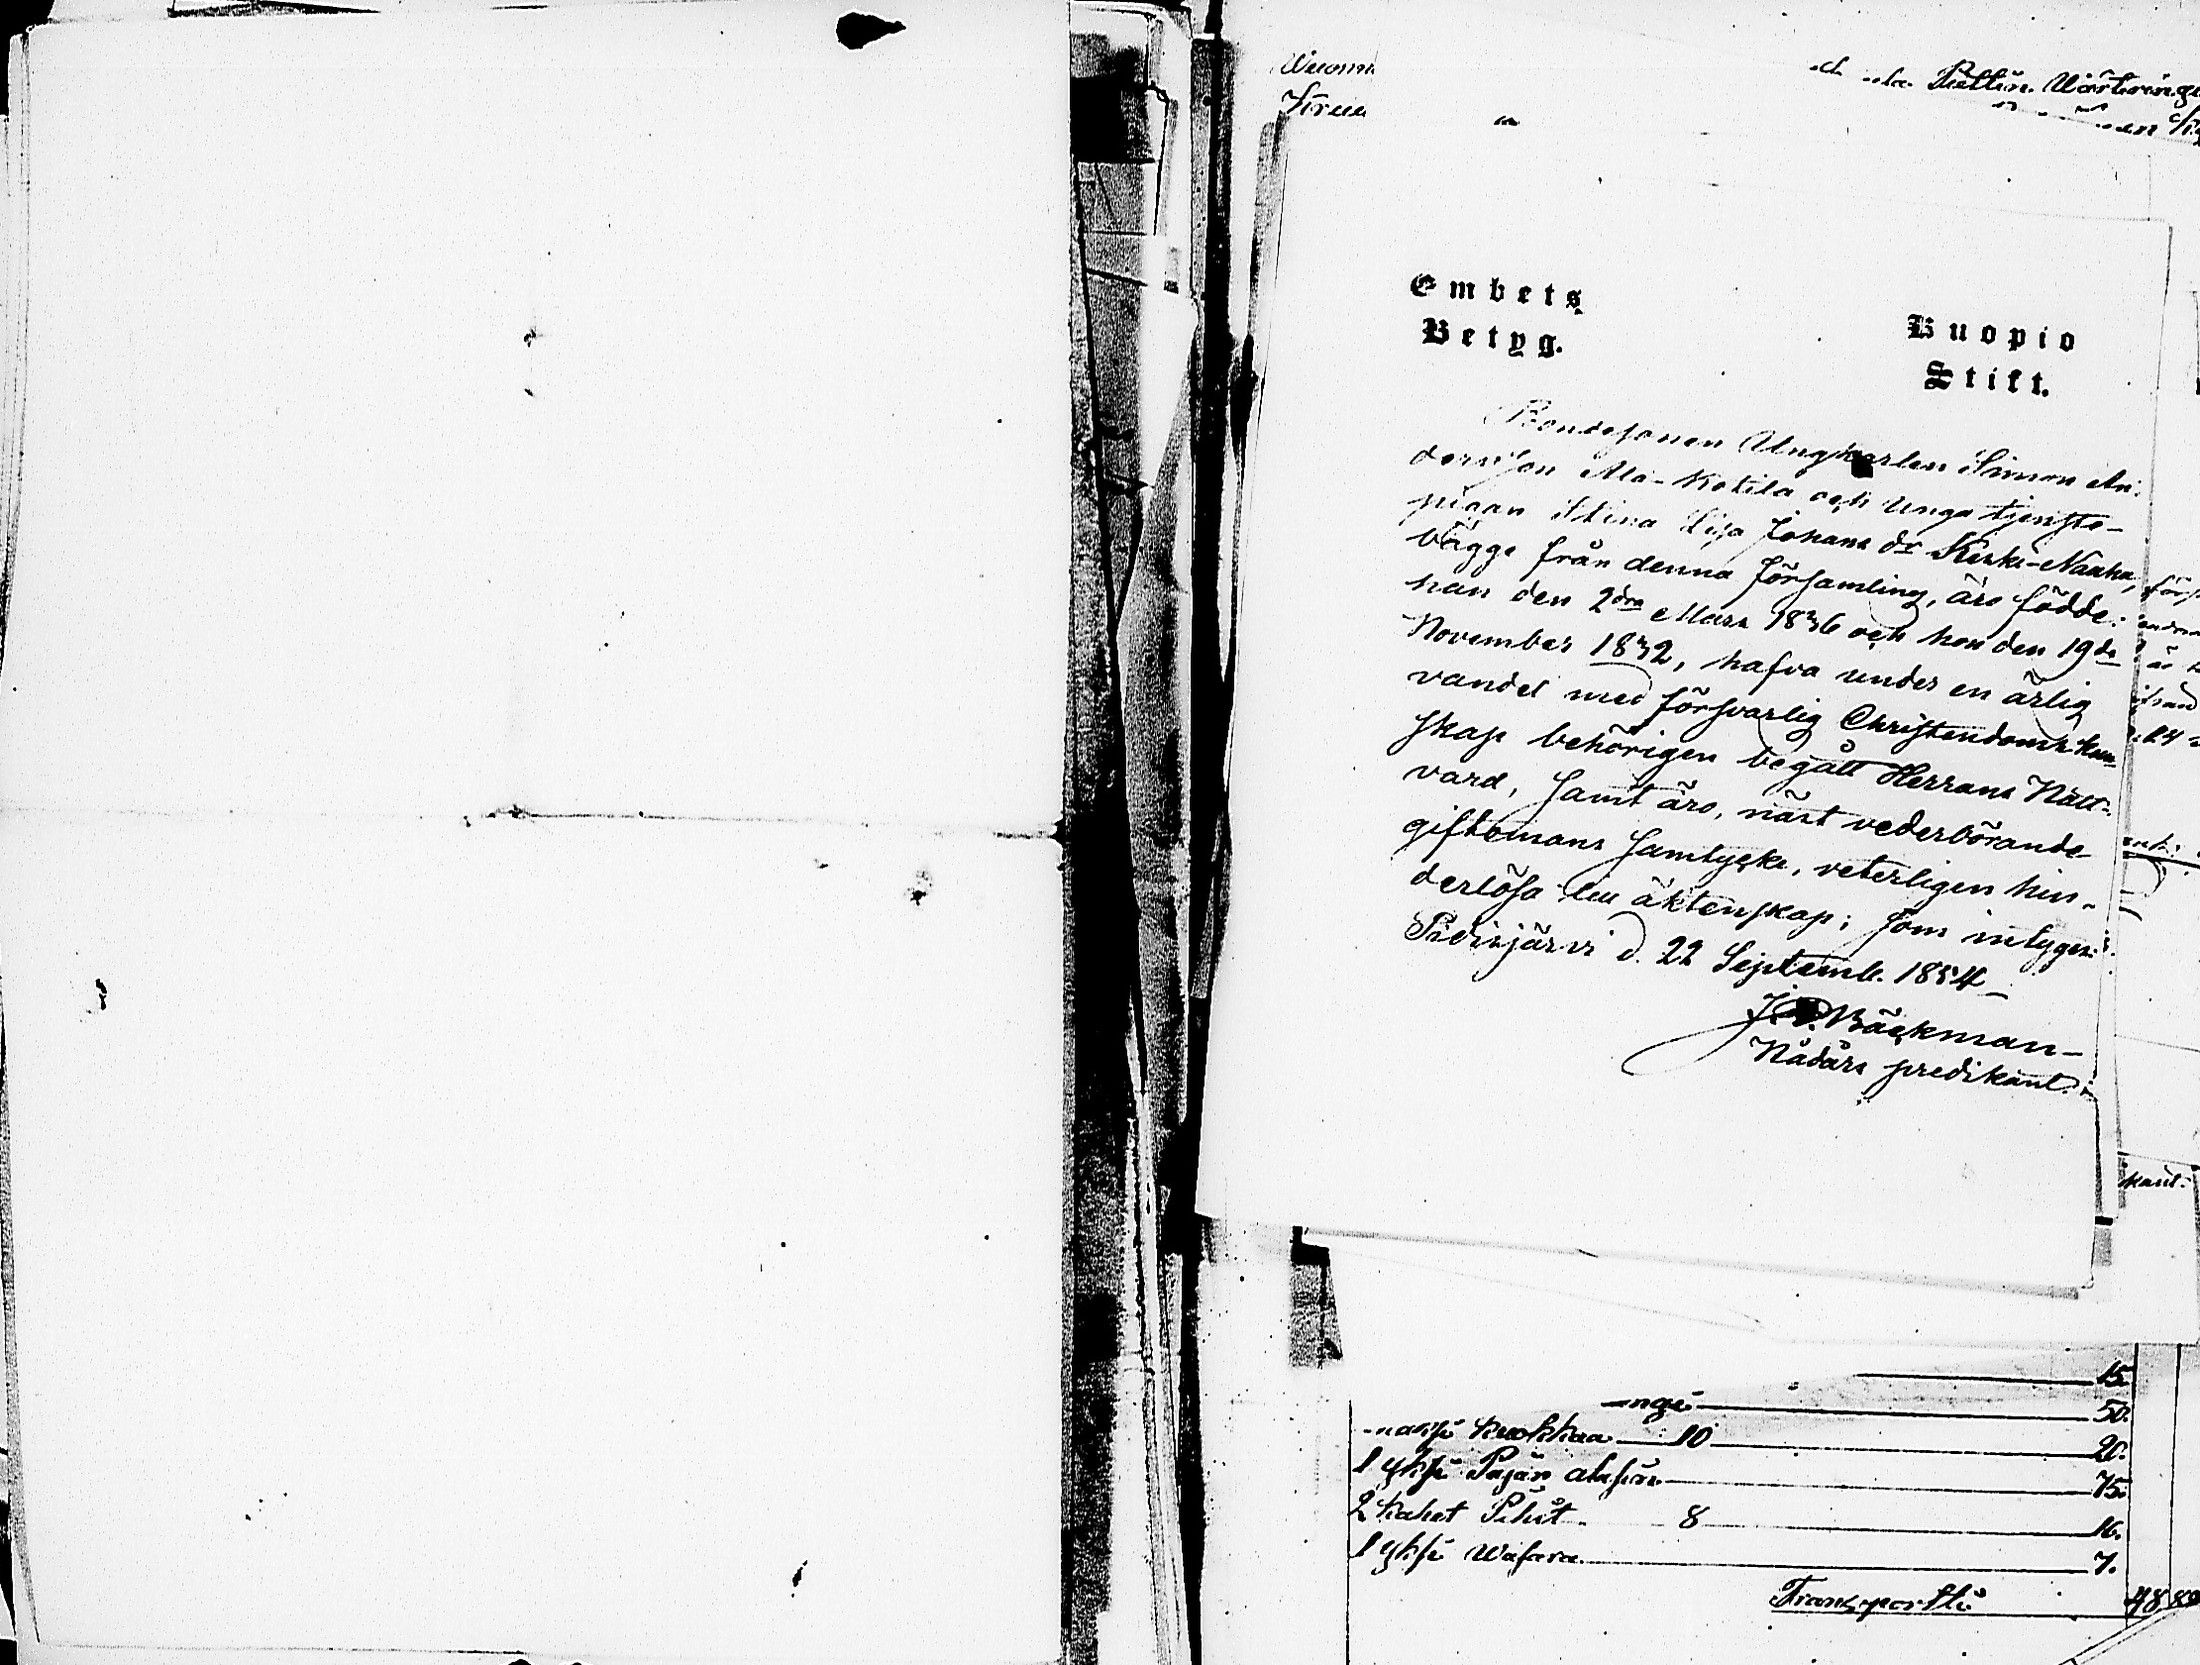 Pertin Wörtering
Embets
Betyg.
Kuopio
Stift.
Bondesonen Ungkarlen Simon An-
dersson Ala-Kotila och Unga tjenste-
pigan Stina Lisa Johans dr Keski-Naaha,
bägge från denna församling, äro födde:
han den 2dra Mars 1836 och hon den 19de
November 1832, hafva under en ärlig
vandel med försvarlig Christendoms kun-
skap behörigen begått Herrans Natt-
vard, samt äro, näst vederbörande
giftomans samtycke, veterligen hin-
derlösa till äktenskap; som intygas.
Pidisjärvi d. 22 Septemb. 1854
J. Bäckman
Nådårs predikant.
kant:
15
50.
kuokkaa 10 20.
1 yksi Pajan alasin 75.
2 kahet Pihit 8 16.
1 yksi Wasara 7.
Transportti